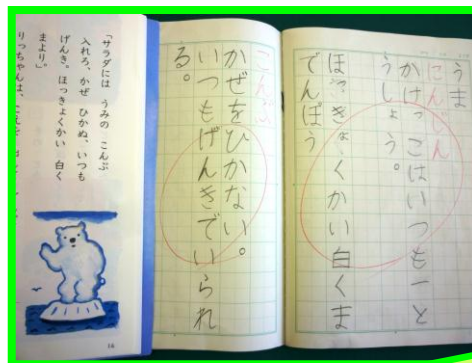 うま
にんじん
かけっこはいつも一と
うしょう。
ほっきょくかい白くま
でんぽう
こんぶ
かぜをひかない。
いつもげんきでいられ
る。
「サラダには うみの こんぶ
入れろ、かぜ ひかぬ、いつも
げんき。ほっきょくかい 白く
まより」
りっちゃんは、